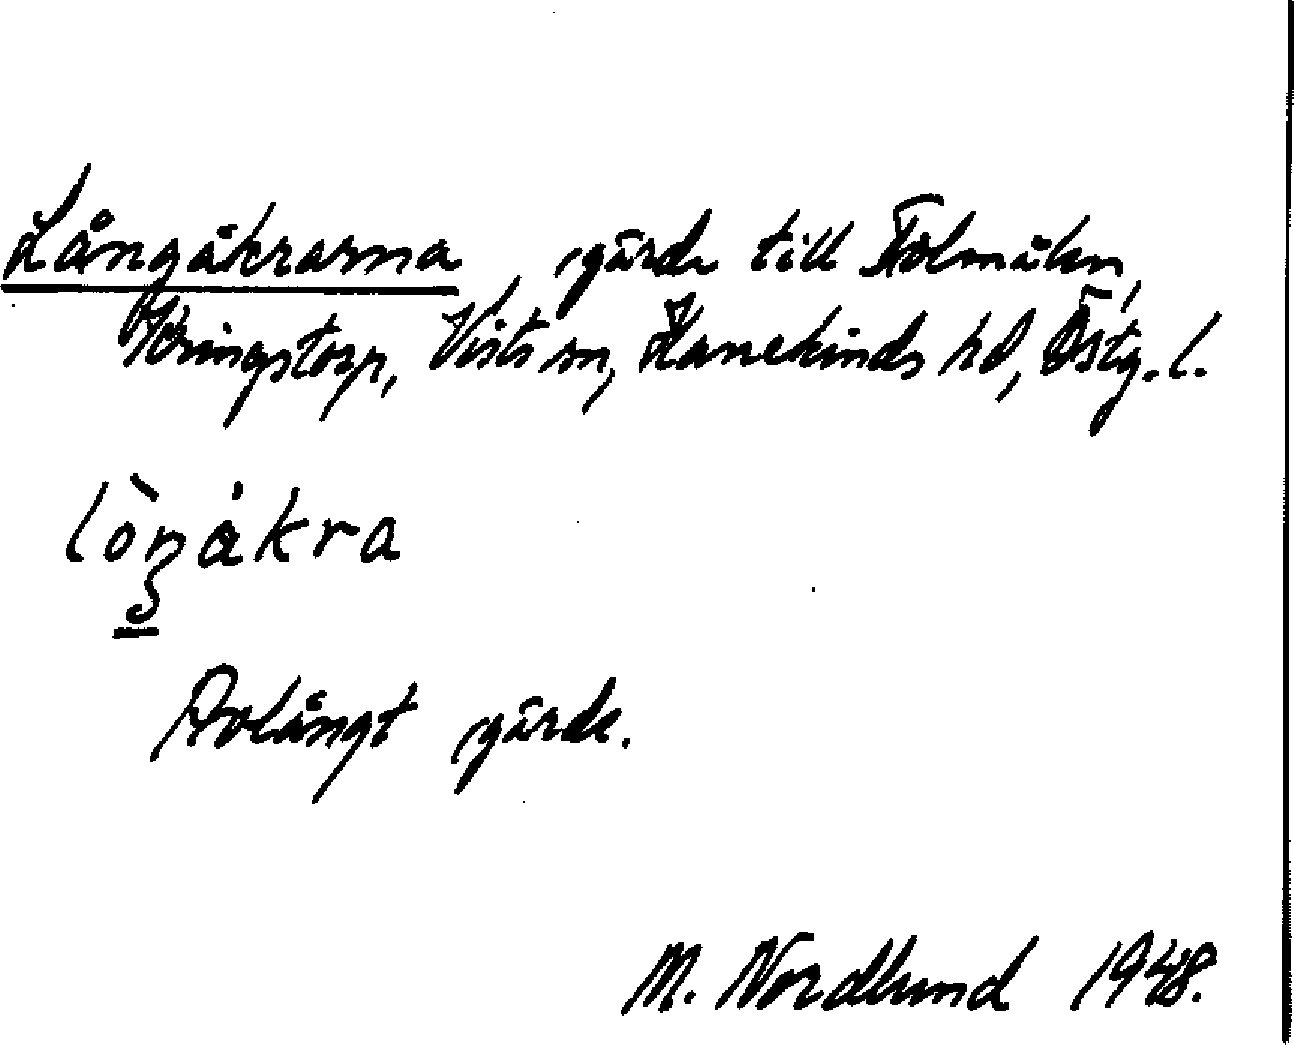 Långåkrarna, gärde till Tolmålen,
Kringstorp, Vists sn, Hanekinds hd, Östg. l.
lòŋákra
Avlångt gärde.
M. Nordlund 1948.